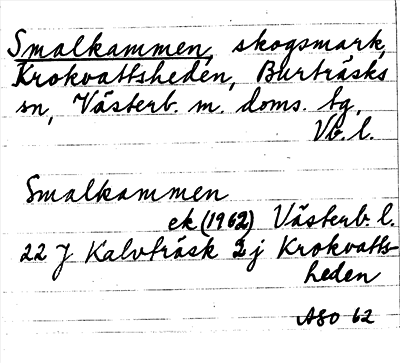 Smalkammen, skogsmark,
Krokvattsheden, Burträsks
sn, Västerb. m. doms. tg,
Vb. l.
Smalkammen
ek (1962) Västerb. l.
22 J Kalvträsk 2j Krokvatts-
heden
ASO 62